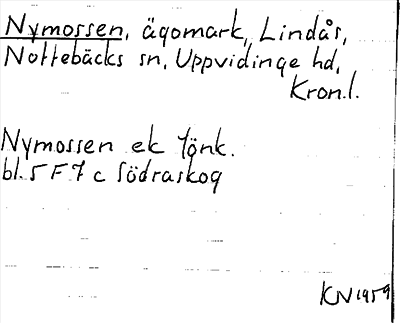 Nymossen, ägomark, Lindås,
Nottebäcks sn, Uppvidinge hd,
Kron.l.
Nymossen ek Jönk.
bl. 5 F 7 c Södraskog
KN 1959